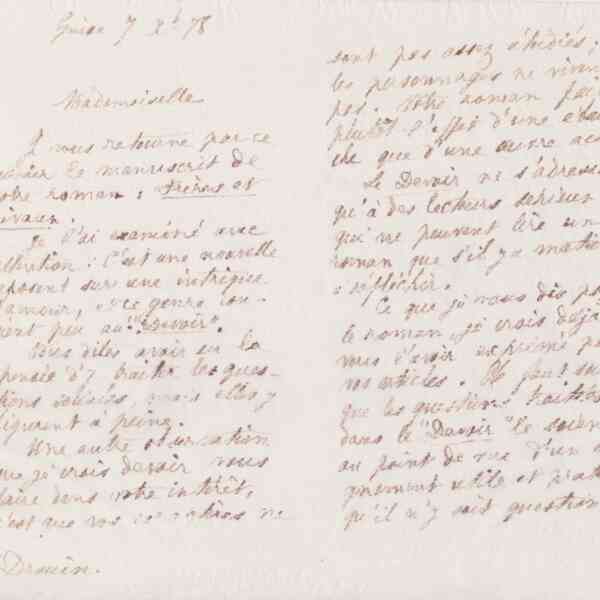 Guise 7 Xbre 78
Mademoiselle
Je vous retourne par ce
courrier le manuscrit de
votre roman : Frères et
rivaux.
Je l'ai examiné avec
attention : C'est une nouvelle
reposant sur une intrigue
d'amour, et ce genre con-
vient peu au "Devoir".
Vous dites avoir eu la
pensée d'y traiter les ques-
tions sociales, mais elles y
figurent à peine.
Une autre observation
que je crois devoir vous
faire dans votre intérêt,
c'est que vos caractères ne
Drouin.
sont pas assez étudiés ;
les personnages ne vivent
pas. Votre roman fait
plutôt l'effet d'une ébau
che que d'une œuvre
Le Devoir ne s'adresse
qu'à des lecteurs sérieux
qui ne peuvent lire un
roman que s'il y a matière
à réfléchir.
Ce que je vous dis
le roman, je crois déjà
vous l'avoir exprimé
vos articles. Il faut
que les questions traitées
dans le "Devoir" le soient
au point de vue d'un
utile et
qu'il n'y soit question